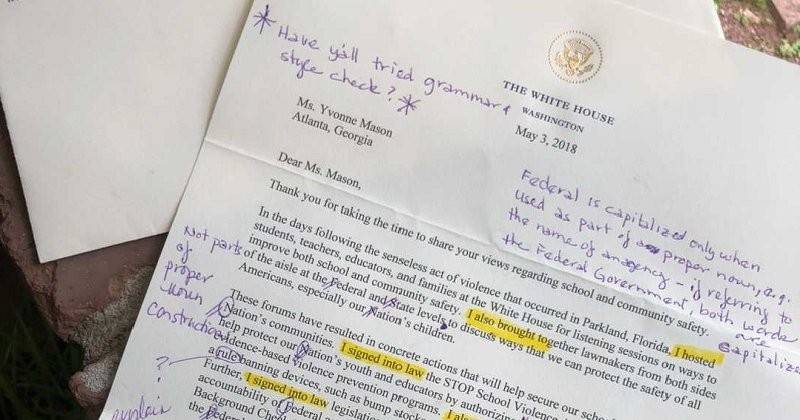 * Have y'all tried grammar &
style check? *
THE WHITE HOUSE
WASHINGTON
May 3, 2018
Ms. Yvonne Mason
Atlanta, Georgia
Dear Ms. Mason,
Federal is capitalized only when
used as part of a proper noun, e.g.
the name of an agency - if referring to
the Federal Government, both words
are
capitalized
Thank you for taking the time to share your views regarding school and community safety.
In the days following the senseless act of violence that occurred in Parkland, Florida, I hosted
students, teachers, educators, and families at the White House for listening sessions on ways to
improve both school and community safety. I also brought together lawmakers from both sides
of the aisle at the Federal and State levels to discuss ways that we can protect the safety of all
Americans, especially our Nation's children.
Not parts
of
proper
noun
construction
These forums have resulted in concrete actions that will help secure our
Nation's communities. I signed into law the STOP School
help protect our Nation's youth and educators by authorizing
evidence-based violence prevention programs. I also
a rule banning devices, such as bump stocks
Further, I signed into law legislation
accountability of Federal
Background
?
explain